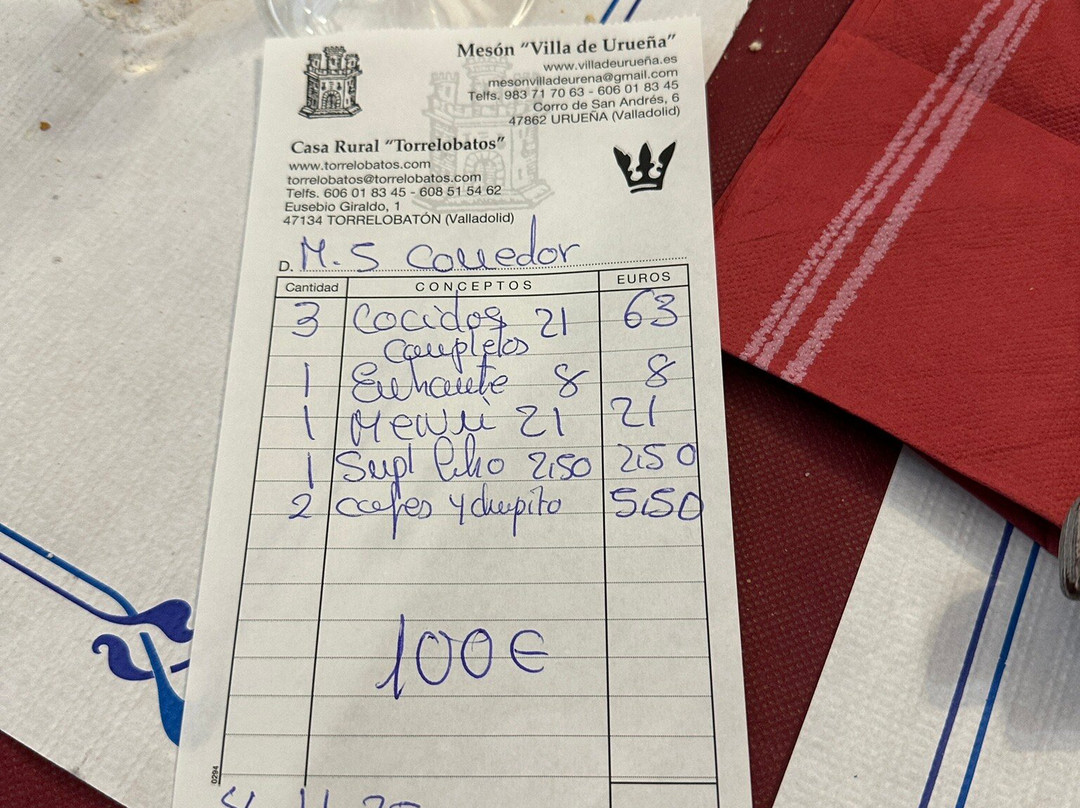 Mesón "Villa de Urueña"
www.villadeurueña.es
mesonvilladeurena@gmail.com
Telfs. 983 71 70 63 - 606 01 83 45
Corro de San Andrés, 6
47862 URUEÑA (Valladolid)
Casa Rural "Torrelobatos"
www.torrelobatos.com
torrelobatos@torrelobatos.com
Telfs. 606 01 83 45 - 608 51 54 62
Eusebio Giraldo, 1
47134 TORRELOBATÓN (Valladolid)
D. M.5 Comedor
Cantidad CONCEPTOS EUROS
3 Cocidos 21 63
completos
1 8 8
1 Menú 21 21
1 Supl 2,50 2,50
2 cafes y chupito 5,50
100€
0294